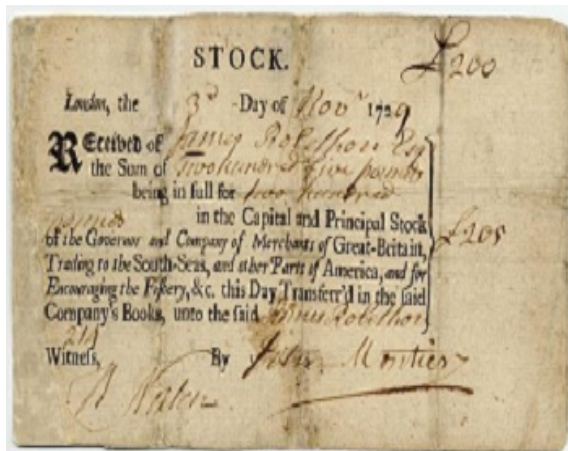 STOCK.
£200
London, the 3d Day of Novr 1729
Received of James Robethon Esq
the Sum of two hundred five pounds
being in full for two hundred
pounds in the Capital and Principal Stock
of the Governor and Company of Merchants of Great-Britain,
£205
Trading to the South-Seas, and other Parts of America, and for
Encouraging the Fishery, &c. this Day Transferr'd in the said
Company's Books, unto the said James Robethon
Witness, By John